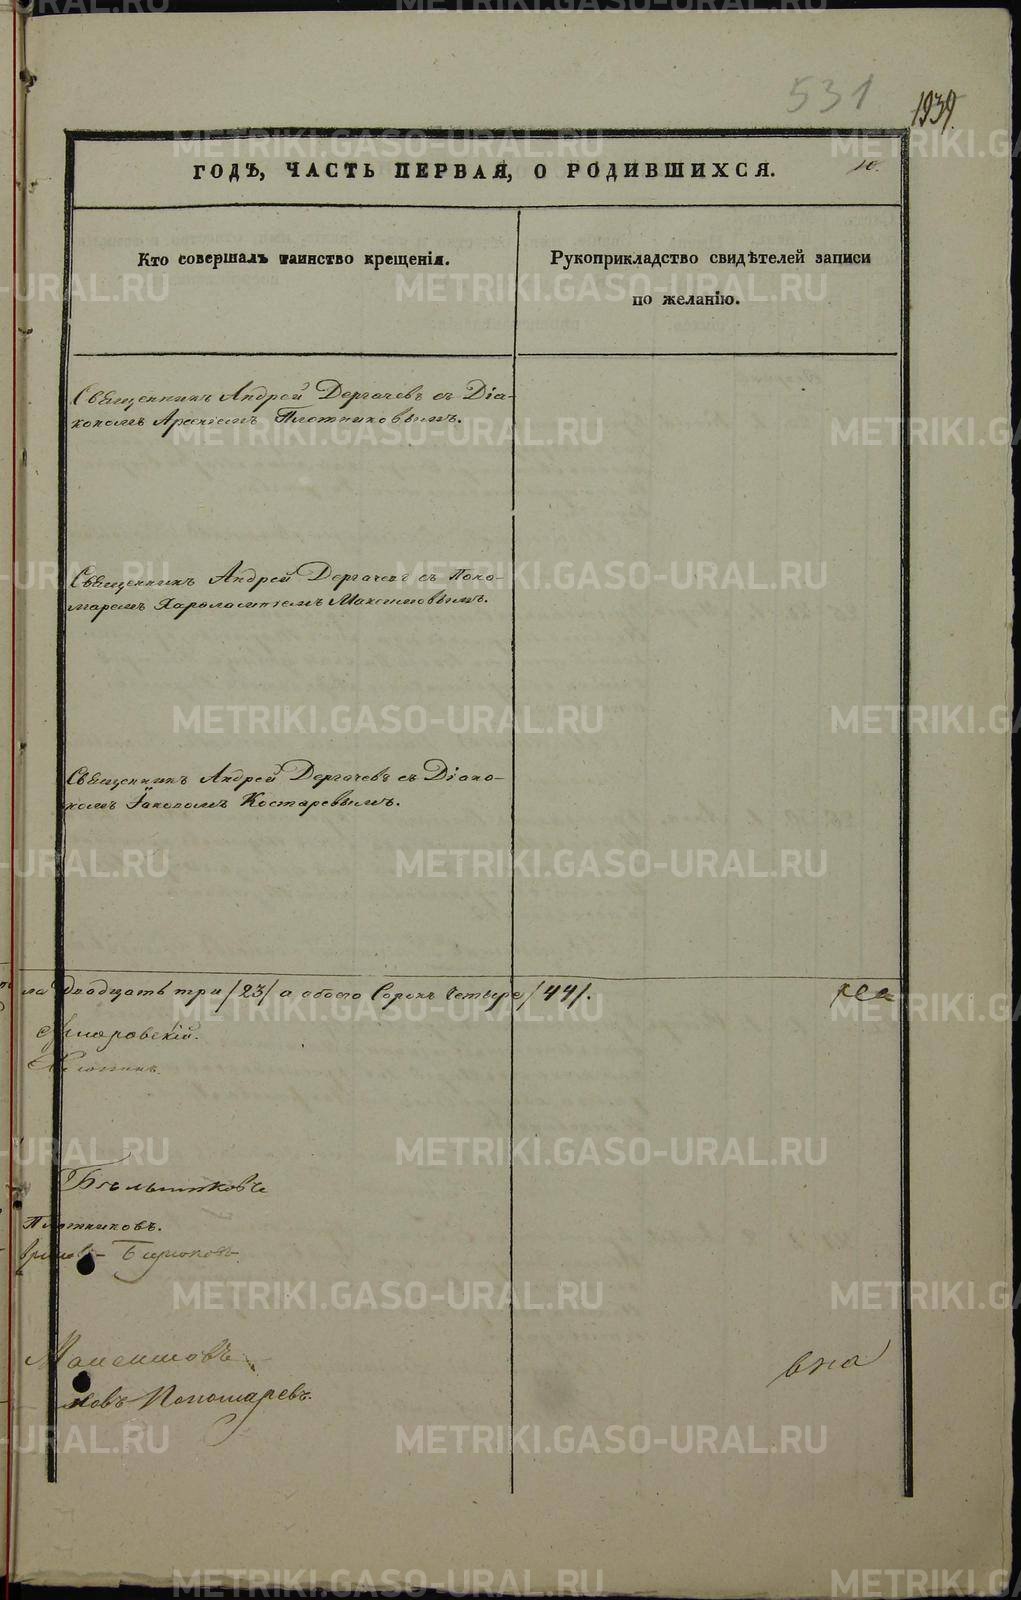 531
1939.
ГОДѢ, ЧАСТЬ ПЕРВАЯ, О РОДИВШИХСЯ.
10.
Кто совершалъ таинство крещенія.
Рукоприкладство свидѣтелей записи
по желанію.
Священникъ Андрей Дергачевъ съ Діа-
кономъ Арсеніемъ Плотниковымъ.
Священникъ Андрей Дергачевъ съ Поно-
маремъ Харлампіемъ Максимовымъ.
Священникъ Андрей Дергачевъ съ Діако-
номъ Іаковомъ Костаревымъ.
ла двадцать три /23/ а обоего Сорокъ четыре /44/.
Бѣльтиковъ
Плотниковъ.
Бирюковъ
Максимовъ
ковъ Пономаревъ.
METRIKI.GASO-URAL.RU